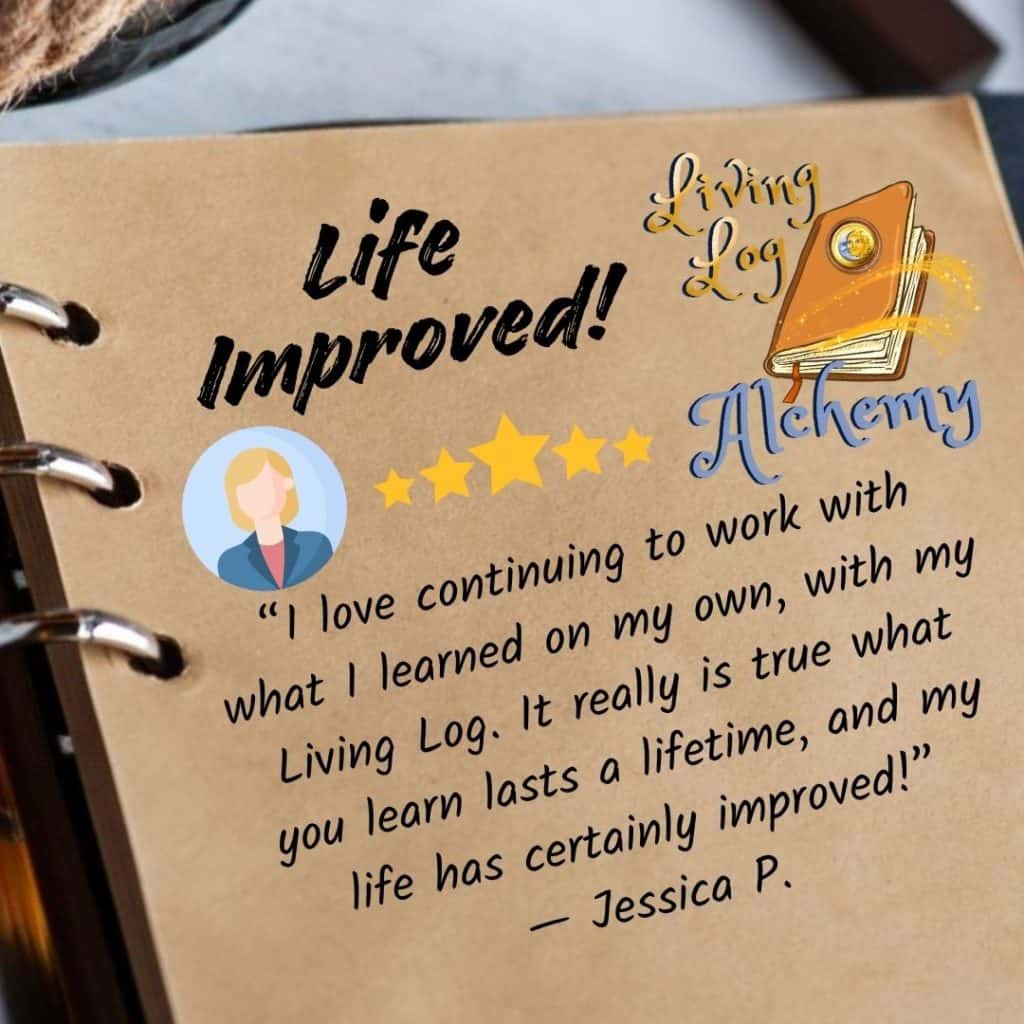 Life
Improved!
Living
Log
Alchemy
“I love continuing to work with
what I learned on my own, with my
Living Log. It really is true what
you learn lasts a lifetime, and my
life has certainly improved!”
— Jessica P.